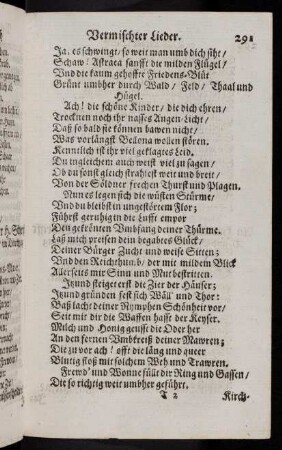 Vermischter Lieder. 291
Ja. es schwingt/ so weit man umb dich siht/
Schaw! Astraea sanfft die milden Flügel/
Vnd die kaum gehoffte Friedens-Blüt
Grünt umbher durch Wald/ Feld/ Thaal und
Hügel.
Ach! die schöne Kinder/ die dich ehren/
Trocknen noch ihr nasses Augen-Licht/
Daß so bald sie können bawen nicht/
Was vorlängst Bellona wollen stören.
Kenntlich ist ihr viel geklagtes Leid.
Du ingleichem auch weist viel zu sagen/
Ob du sonst gleich strahlest weit und breit/
Von der Söldner frechen Thurst und Plagen.
Nun es legen sich die wüsten Stürme/
Vnd du bleibst in ungestörtem Flor;
Führst geruhig in die Lufft empor
Den gekrönten Vmbfang deiner Thürme.
Laß mich preisen dein begabtes Glück/
Deiner Bürger Zucht und weise Sitten;
Vnd den Reichthum. b/ der mit mildem Blick
Allerseits mit Sinn und Mut bestritten.
Itzund steiget erst die Zier der Häuser;
Itzund gründen fest sich Wäll und Thor:
Baß lacht deiner Nymphen Schönheit vor/
Seit mit dir die Waffen hasst der Keyser.
Milch und Honig geusst die Oder her
An den fernen Vmbkreiß deiner Mawren;
Die zu vor ach! offt die läng und queer
Blutig floß mit solchem Weh und Trawren.
Frewd' und Wonne füllt dir Ring und Gassen/
Die so richtig weit umbher geführt.
T 2 Kirch-